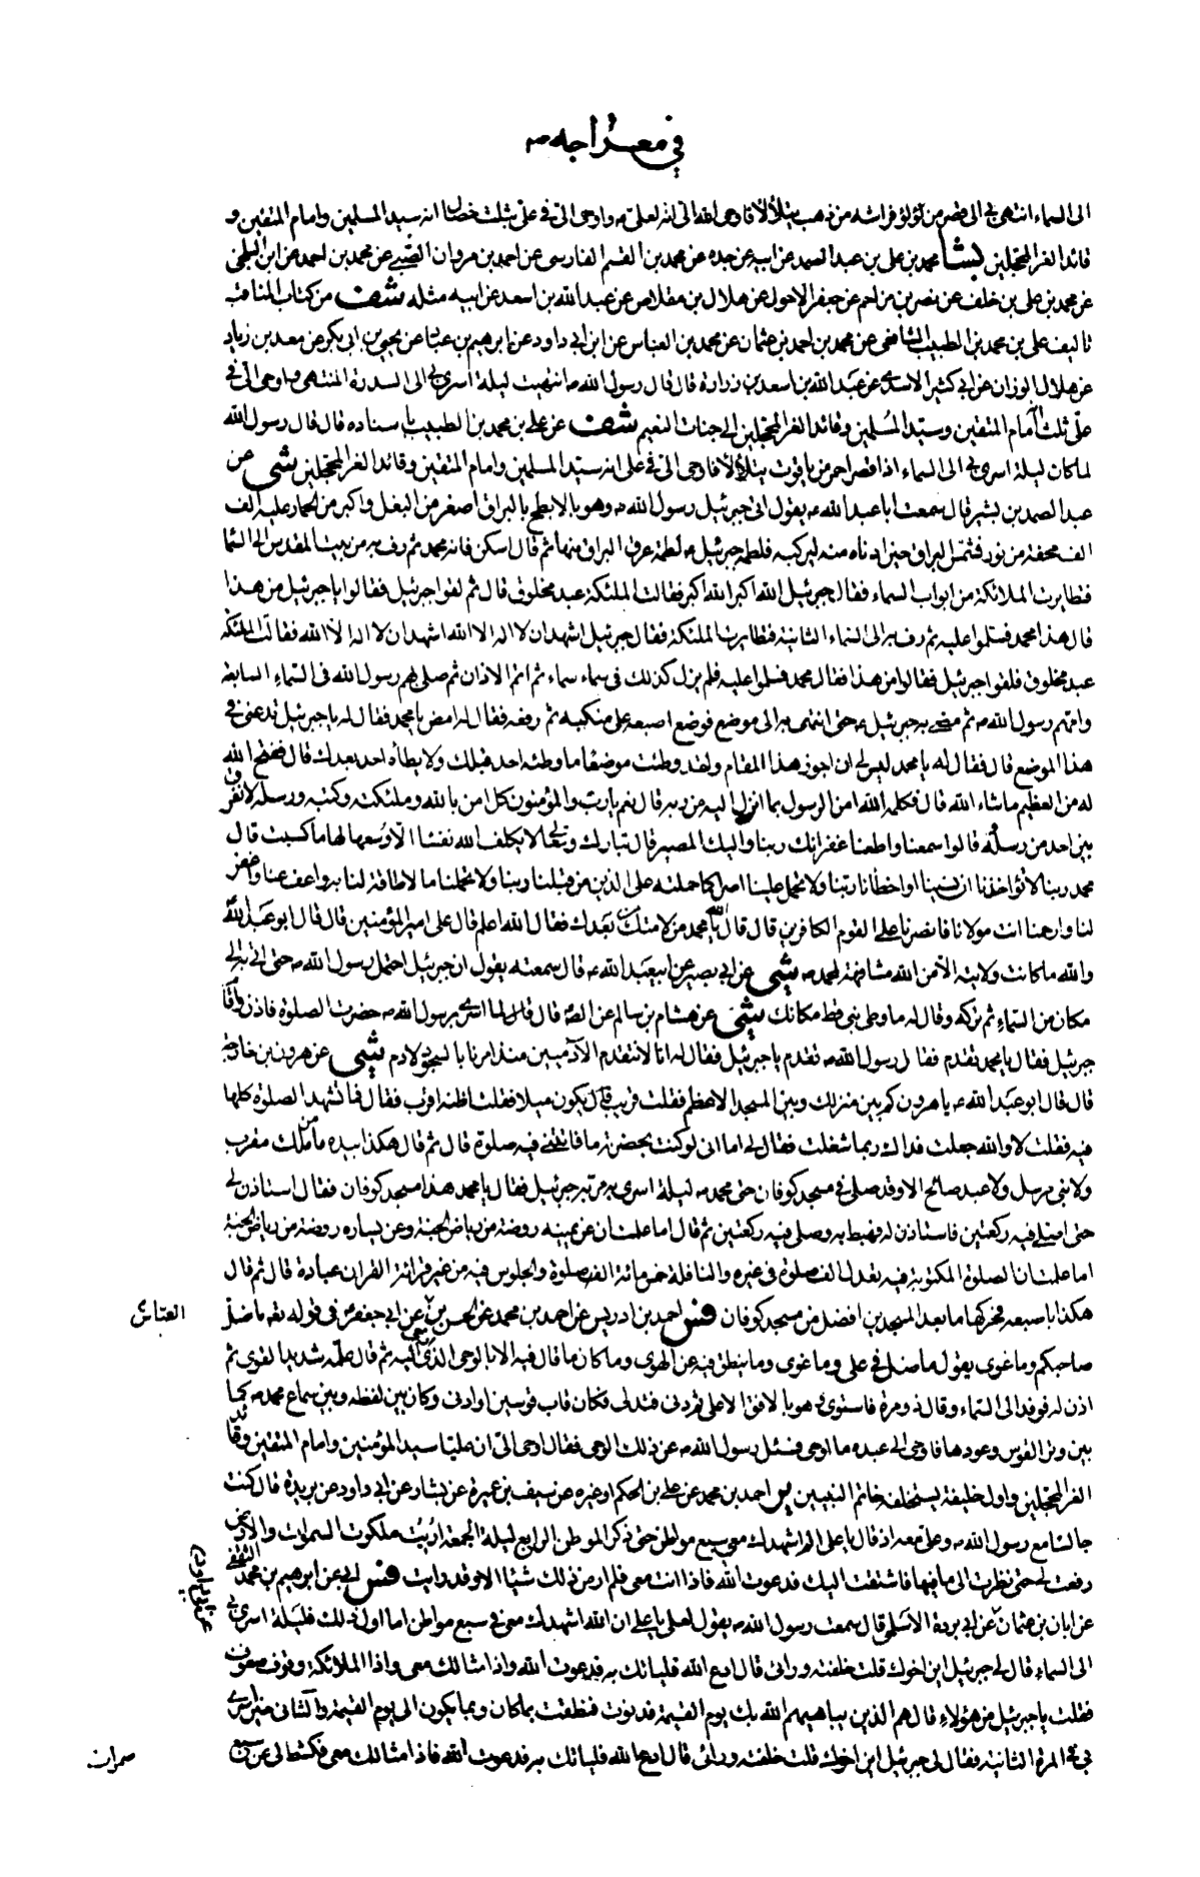 في معراجه ص
الى السماء انتهى بي الى قصر من لؤلؤ فراشه من ذهب يتلألأ فاوحى الله الى انه لعلى ص واوحى الى في على بثلث خصال انه سيد المسلمين وامام المتقين و
قائد الغر المحجلين بشا محمد بن على بن عبد الصمد عن ابيه عن جده عن محمد بن القسم الفارسى عن احمد بن مروان الضبى عن محمد بن احمد عن ابن البلخى
عن محمد بن على بن خلف عن نصر بن مزاحم عن جعفر الاحول عن هلال بن مقلاص عن عبد الله بن اسعد عن ابيه مثله شف من كتاب المناقب
تاليف على بن محمد بن الطبيب الشافعى عن محمد بن احمد بن عثمان عن محمد بن العباس عن ابن ابى داود عن ابرهيم بن عباد عن يحيى بن ابى بكر عن معد بن زياد
عن هلال الوزان عن ابى كثير الاسدى عن عبد الله بن اسعد بن زرارة قال قال رسول الله ص انتهيت ليلة اسرى بي الى السدرة المنتهى فاوحى الى في
على ثلث امام المتقين وسيد المسلمين وقائد الغر المحجلين الى جنات النعيم شف عن على بن محمد بن الطبيب باسناده قال قال رسول الله
لما كان ليلة اسرى بي الى السماء اذا قصر احمر من ياقوت يتلألأ فاوحى الى في على انه سيد المسلمين وامام المتقين وقائد الغر المحجلين شى عن
عبد الصمد بن بشير قال سمعت ابا عبد الله ع يقول اتى جبرئيل رسول الله ص وهو بالابطح بالبراق اصغر من البغل واكبر من الحمار عليه الف
الف محفة من نور فشمس البراق حين ادناه منه ليركبه فلطمه جبرئيل ع لطمة عرق البراق منها ثم قال اسكن فانه محمد ثم رف به من بيت المقدس الى السما
فتطايرت الملائكة من ابواب السماء فقال جبرئيل الله اكبر الله اكبر فقالت الملئكة عبد مخلوق قال ثم لقوا جبرئيل فقالوا يا جبرئيل من هذا
قال هذا محمد فسلموا عليه ثم رف به الى السماء الثانية فتطايرت الملئكة فقال جبرئيل اشهد ان لا اله الا الله اشهد ان لا اله الا الله فقالت الملئكة
عبد مخلوق فلقوا جبرئيل فقالوا من هذا فقال محمد فسلموا عليه فلم يزل كذلك في سماء سماء ثم اتم الاذان ثم صلى بهم رسول الله فى السماء السابعة
وامهم رسول الله ص ثم مضى به جبرئيل ع حتى انتهى به الى موضع فوضع اصبعه على منكبيه ثم رفعه فقال له امض يا محمد فقال له يا جبرئيل تدعنى في
هذا الموضع قال فقال له يا محمد ليس لى ان اجوز هذا المقام ولقد وطئت موضعا ما وطئه احد قبلك ولا يطأه احد بعدك قال ففتح الله
له من العظيم ما شاء الله قال فكلمه الله امن الرسول بما انزل اليه من ربه قال نعم يا رب والمؤمنون كل امن بالله وملئكته وكتبه ورسله لا نفرق
بين احد من رسله قالوا سمعنا واطعنا غفرانك ربنا واليك المصير قال تبارك وتعالى لا يكلف الله نفسا الا وسعها لها ما كسبت قال
محمد ربنا لا تؤاخذنا ان نسينا او اخطانا ربنا ولا تحمل علينا اصرا كما حملته على الذين من قبلنا ربنا ولا تحملنا ما لا طاقة لنا به واعف عنا واغفر
لنا وارحمنا انت مولانا فانصرنا على القوم الكافرين قال قال الله يا محمد من لامتك من بعدك فقال الله اعلم قال على امير المؤمنين قال قال ابو عبد الله
والله ما كانت ولايته الا من الله مشافهة لمحمد ص شى عن ابى بصير عن ابيعبد الله ع قال سمعته يقول ان جبرئيل احتمل رسول الله ص حتى انى به الى
مكان من السماء ثم تركه وقال له ما وطى نبى قط مكانك شى عن هشام بن سالم عن الصه قال قال لما اسرى برسول الله ص حضرت الصلوة فاذن واقام
جبرئيل فقال يا محمد تقدم فقال رسول الله ص تقدم يا جبرئيل فقال له انا لا نتقدم الآدميين منذ امرنا بالسجود لادم شى عن هرون بن خارجة
قال قال ابو عبد الله ع يا هرون كم بين منزلك وبين المسجد الاعظم فقلت قريب قال يكون ميلا فقلت اظنه اقرب فقال فما تشهد الصلوة كلها
فيه فقلت لا والله جعلت فداك ربما شغلت فقال لى اما انى لو كنت بحضرته ما فاتتنى فيه صلوة قال ثم قال هكذا بيده ما من ملك مقرب
ولا نبى مرسل ولا عبد صالح الا وقد صلى في مسجد كوفان حتى محمد ص ليلة اسرى به مر به جبرئيل فقال يا محمد هذا مسجد كوفان فقال استاذن لى
حتى اصلى فيه ركعتين فاستاذن له فهبط به وصلى فيه ركعتين ثم قال اما علمت ان عن يمينه روضة من رياض الجنة وعن يساره روضة من رياض الجنة
اما علمت ان الصلوة المكتوبة فيه تعدل الف صلوة في غيره والنافلة خمسمائة صلوة والجلوس فيه من غير قرائة القران عبادة قال ثم قال
هكذا باصبعه فحركها ما بعد المسجدين افضل من مسجد كوفان فس احمد بن ادريس عن احمد بن محمد عن الحسين بن عن ابى جعفر ع في قوله تعه ما ضل
العباس
صاحبكم وما غوى يقول ما ضل في على وما غوى وما ينطق فيه عن الهوى وما كان ما قال فيه الا بالوحى الذى اوحى اليه ثم قال علمه شديد القوى ثم
اذن له فوفد الى السماء وقال ذو مرة فاستوى وهو بالافق الاعلى ثم دنى فتدلى فكان قاب قوسين او ادنى وكان بين لفظه وبين سماع محمد ص كما
بين وتر القوس وعودها فاوحى الى عبده ما اوحى فسئل رسول الله ص عن ذلك الوحى فقال اوحى الى ان عليا سيد المؤمنين وامام المتقين وقائد
الغر المحجلين واول خليفة يستخلفه خاتم النبيين ير احمد بن محمد عن على بن الحكم او غيره عن سيف بن عميرة عن بشار عن ابى داود عن بريدة قال كنت
جالسا مع رسول الله ص وعلى معه اذ قال يا على الم اشهدك معى سبع مواطن حتى ذكر الموطن الرابع ليلة الجمعة اريت ملكوت السموات والارض
رفعت لى حتى نظرت الى ما فيها فاشتقت اليك فدعوت الله فاذا انت معى فلم ار من ذلك شيئا الا وقد رايت فس ابى عن ابرهيم بن محمد الثقفى
عن ابان بن عثمان عن ابى بردة الاسلمى قال سمعت رسول الله ص يقول لعلى يا على ان الله اشهدك معى في سبع مواطن اما اول ذلك فليلة اسرى بى
عن ابى داود
الى السماء قال لى جبرئيل اين اخوك قلت خلفته ورائى قال ادع الله فلياتك به فدعوت الله واذا مثالك معى واذا الملائكة وقوف صفوف
فقلت يا جبرئيل من هؤلاء قال هم الذين يباهيهم الله بك يوم القيمة فدنوت فنطقت بما كان وبما يكون الى يوم القيمة والثانى حين اسرى
بى في المرة الثانية فقال لى جبرئيل اين اخوك قلت خلفته ورائى قال ادع الله فلياتك به فدعوت الله فاذا مثالك معى فكشط لى عن سبع
سموات